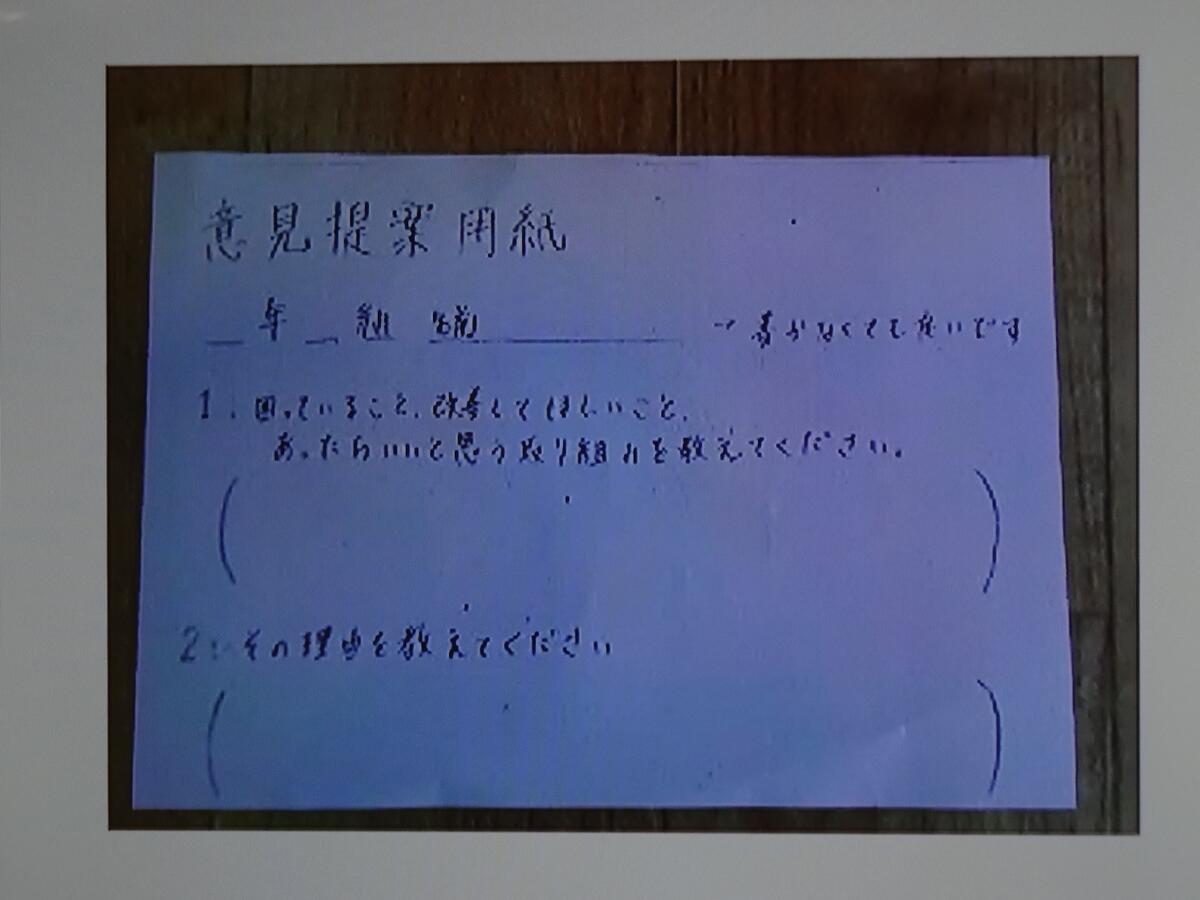 意見提案用紙
＿年＿組 名前＿＿＿＿ →書かなくても良いです
1. 困っていること、改善してほしいこと、
あったらいいと思う取り組みを教えてください。
(　　)
2. その理由を教えてください
(　　)